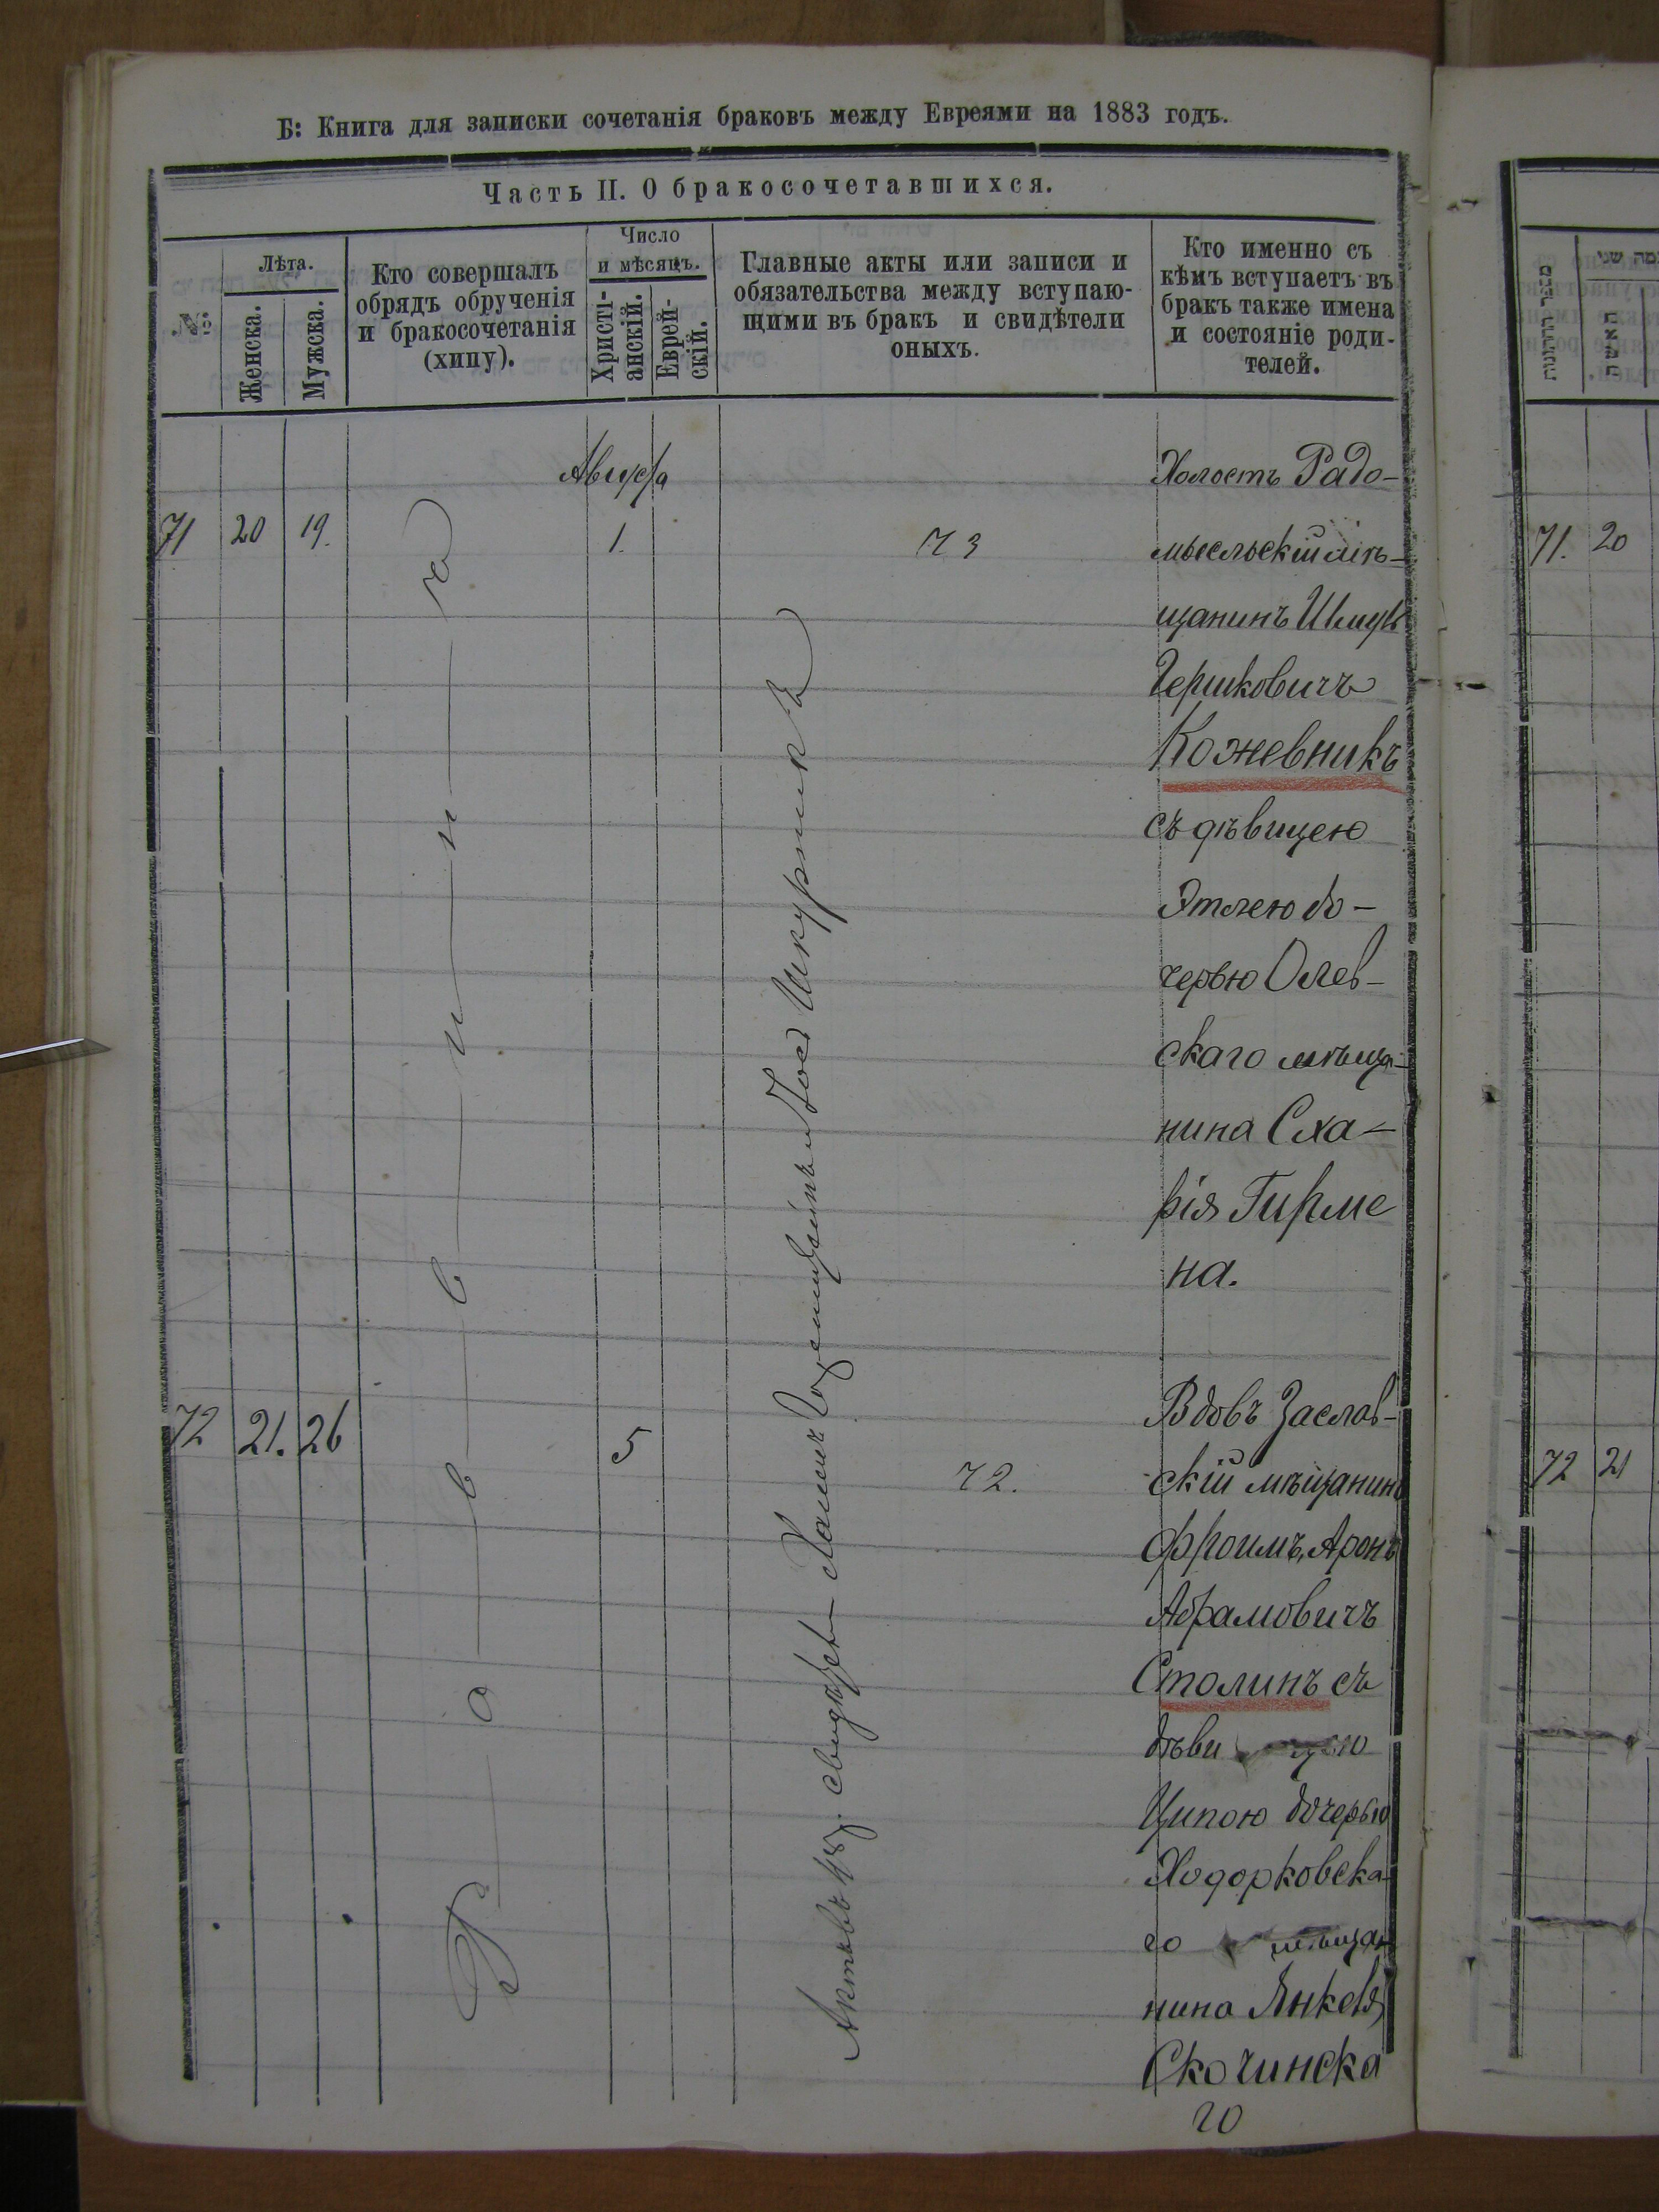 Б: Книга для записки сочетанія браковъ между Евреями на 1883 годъ.
Часть II. О бракосочетавшихся.
№
Лѣта.
Женска.
Мужска.
Кто совершалъ
обрядъ обрученія
и бракосочетанія
(хипу).
Число
и мѣсяцъ.
Христі-
анскій.
Еврей-
скій.
Главные акты или записи и
обязательства между вступаю-
щими въ бракъ и свидѣтели
оныхъ.
Кто именно съ
кѣмъ вступаетъ въ
бракъ также имена
и состояніе роди-
телей.
Августа
71 20 19. 1. 73
Холостъ Радо-
мысльскій мѣ-
щанинъ Шмуль
Гершковичъ
Кожевникъ
съ дѣвицею
Этлею до-
черью Олев-
скаго мѣща-
нина Сха-
рія Гирме
на.
72 21. 26 5 72.
Вдовъ Заслав-
скій мѣщанинъ
Фроимъ, Аронъ
Абрамовичъ
Столинъ съ
дѣвицею
Ципою дочерью
Ходорковска-
го мѣща-
нина Янкеля
Скочинска
го
Раввинъ
Шкурникъ
מספר החתונות
האשה
71. 20
72 21